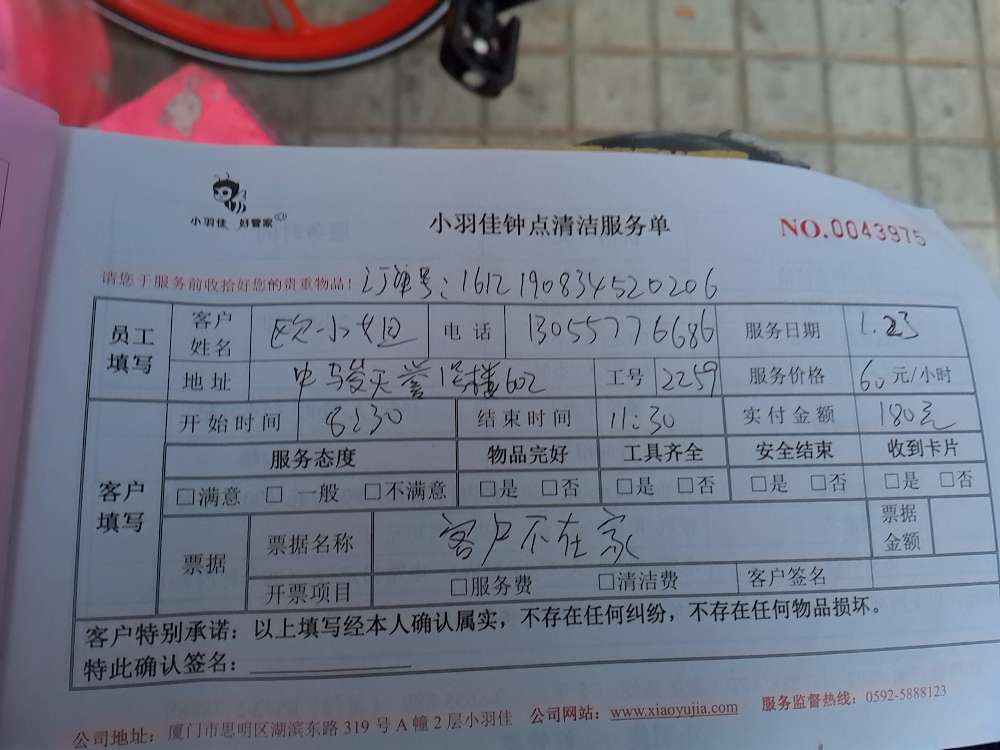 小羽佳 好管家
小羽佳钟点清洁服务单
NO.0043975
请您于服务前收拾好您的贵重物品! 订单号:161219083452020​6
员工填写 客户姓名 欧小姐 电话 13055776686 服务日期 1.23
地址 中骏天誉1号楼602 工号 2259 服务价格 60元/小时
客户填写 开始时间 8:30 结束时间 11:30 实付金额 180元
服务态度 物品完好 工具齐全 安全结束 收到卡片
□满意 □一般 □不满意 □是 □否 □是 □否 □是 □否 □是 □否
票据 票据名称 客户不在家 票据金额
开票项目 □服务费 □清洁费 客户签名
客户特别承诺:以上填写经本人确认属实,不存在任何纠纷,不存在任何物品损坏。
特此确认签名:
公司地址:厦门市思明区湖滨东路319号A幢2层小羽佳 公司网站:www.xiaoyujia.com 服务监督热线:0592-5888123